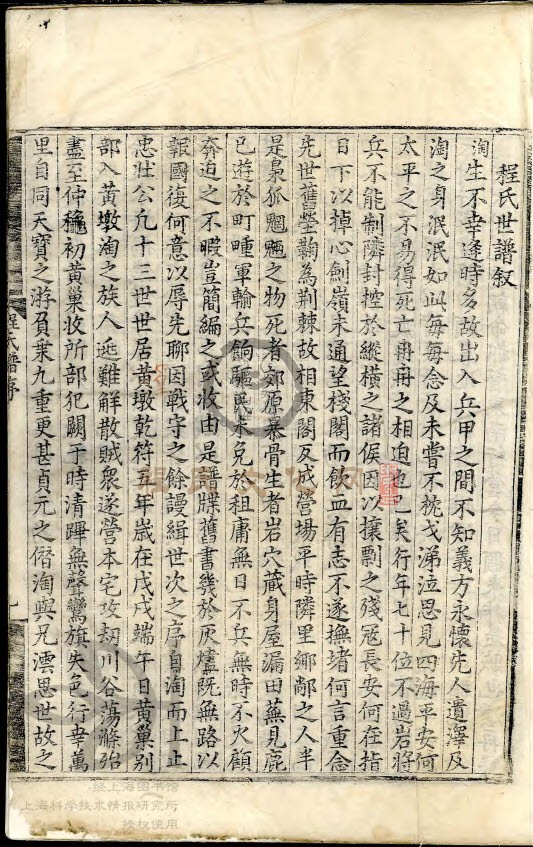 程氏世譜叙
淘生不幸逢時多故出入兵甲之間不知義方永懷先人遺澤及
淘之身泯泯如此每每念及未嘗不枕戈涕泣思見四海平安何
太平之不易得死亡冉冉之相迫也已矣行年七十位不過岩將
兵不能制隣封控於縱橫之諸侯因以攘剽之殘冦長安何在指
日下以掉心劍嶺未通望棧閣而飲血有志不遂撫堵何言重念
先世舊塋鞠為荆棘故相東閣反成營場平時隣里鄉鄰之人半
是梟狐魍魎之物死者郊原暴骨生者岩穴藏身屋漏田蕪見鹿
已遊於町畽軍輸兵餉驅民未免於租庸無日不兵無時不火顧
奔迫之不暇豈簡編之或收由是譜牒舊書幾於灰燼既無路以
報國復何意以辱先聊因戰守之餘謾緝世次之序自淘而上止
忠壯公凡十三世世居黃墩乾符五年歲在戊戌端午日黃巢别
部入黃墩淘之族人逃難解散賊衆遂營本宅攻刼川谷蕩滌殆
盡至仲穐初黃巢收所部犯闕于時清蹕無聲鸞旗失色行幸萬
里自同天寶之游負乗九重更甚貞元之僭淘與兄澐思世故之
程氏譜序
經上海图书馆
上海科学技术情报研究所
授权使用